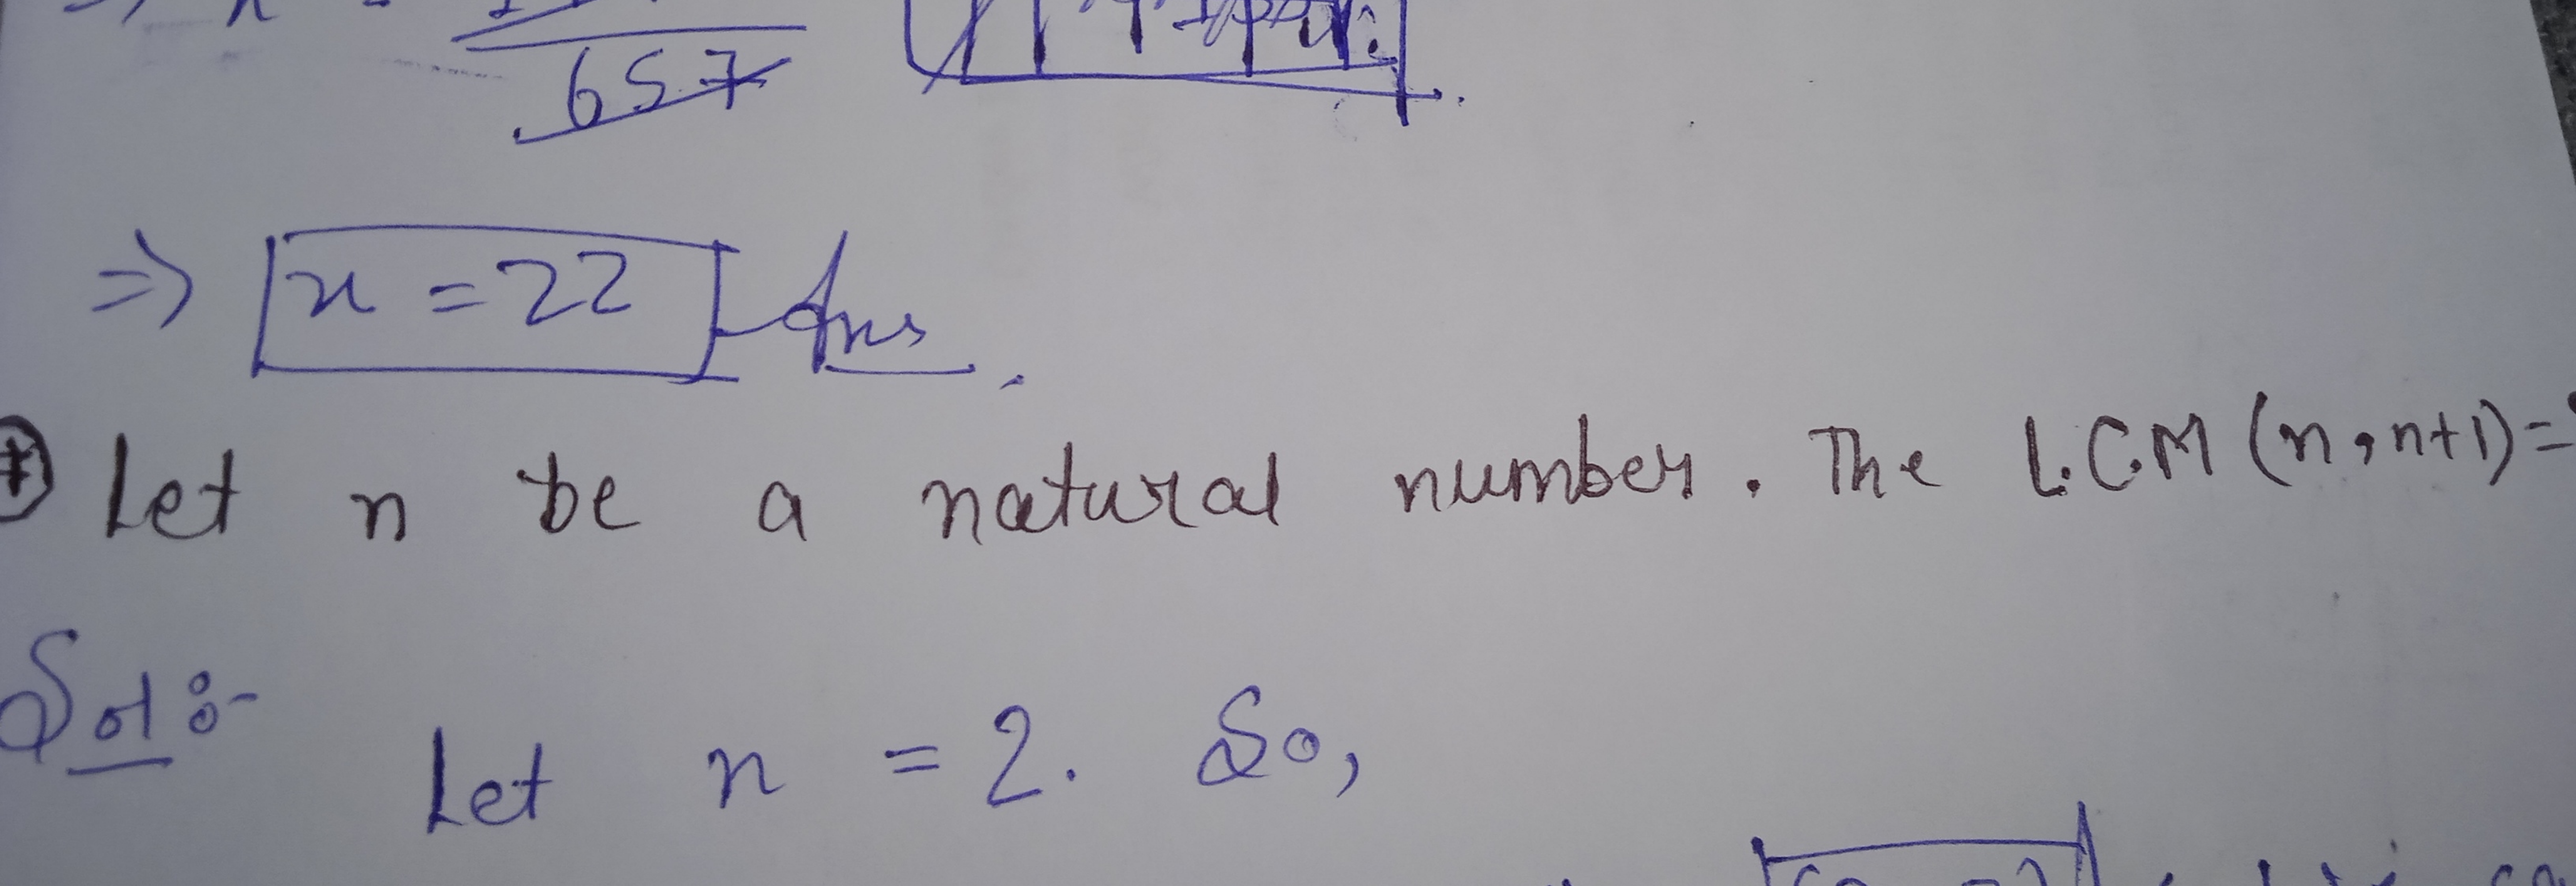 657
⇒ x = 22 Ans.
* Let n be a natural number. The L.C.M (n, n+1) =
Sol:-
Let n = 2. So,